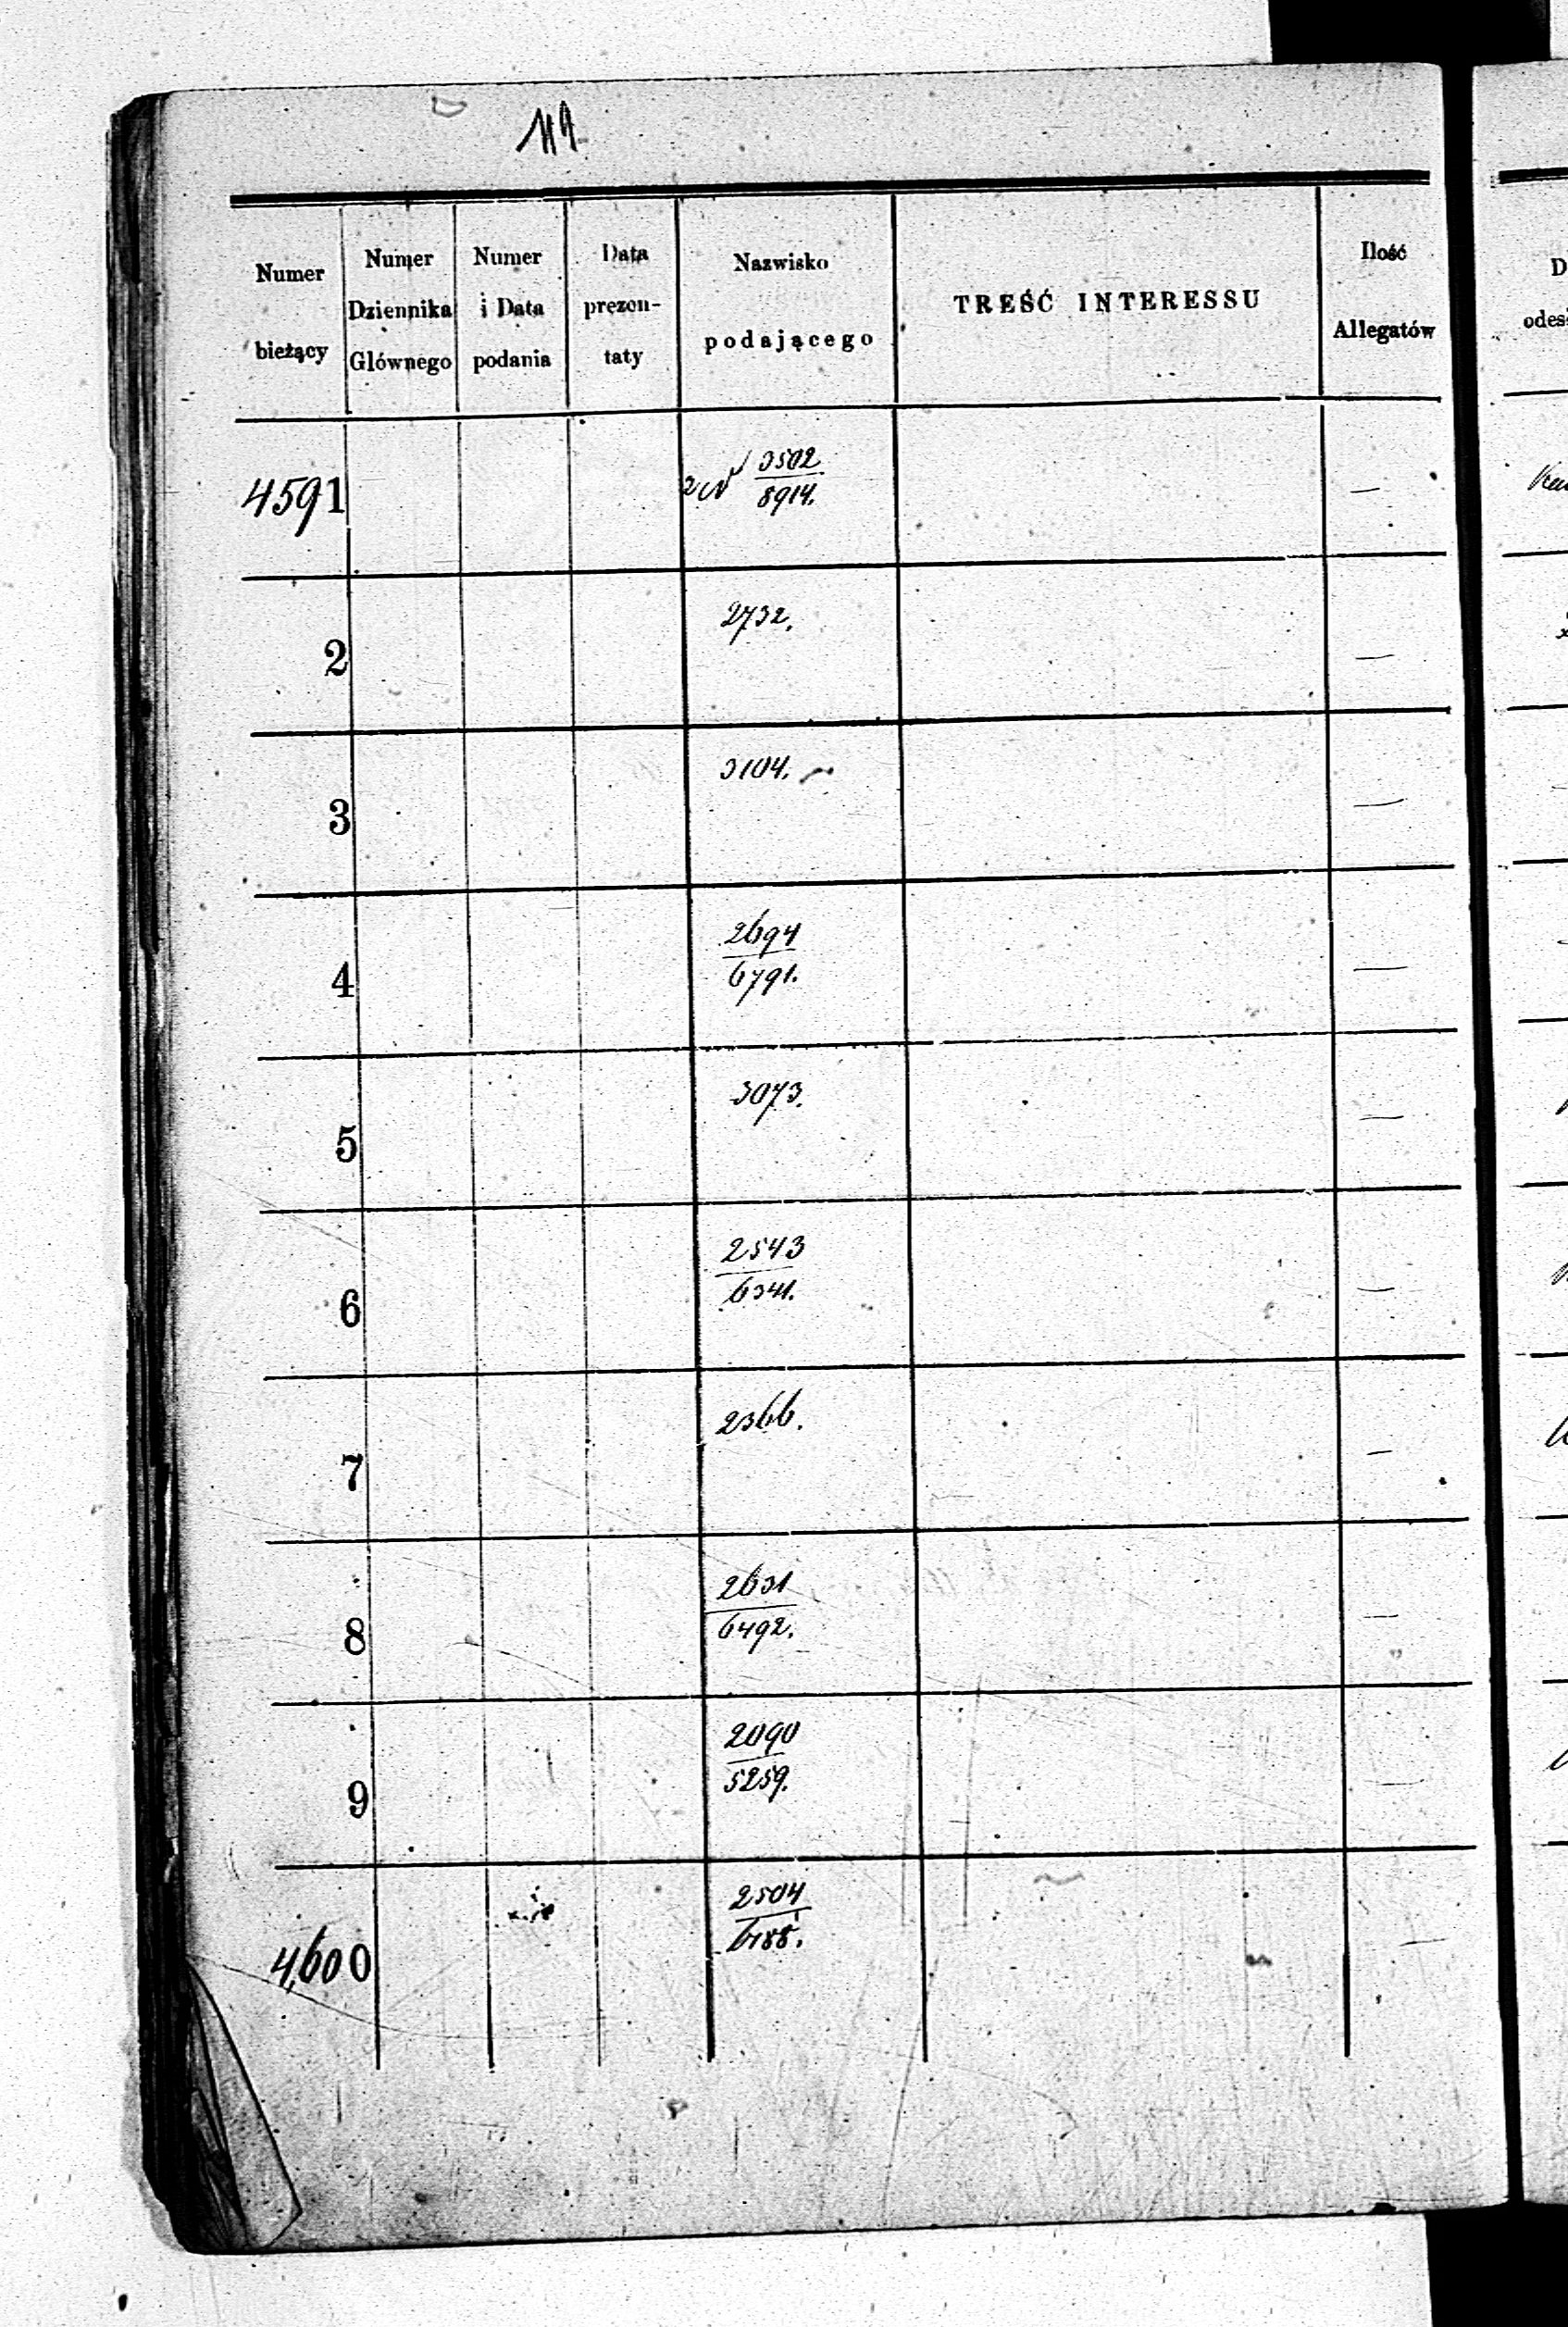 Numer bieżący
Numer Dziennika Głównego
Numer i Data podania
Data prezentaty
Nazwisko podającego
TREŚĆ INTERESSU
Ilość Allegatów
4591
3502
8914.
—
2
2732.
—
3
3104.
—
4
2694
6791.
—
5
3073.
—
6
2543
6341.
—
7
2366.
—
8
2631
6492.
—
9
2090
5259.
—
4,600
2504
—